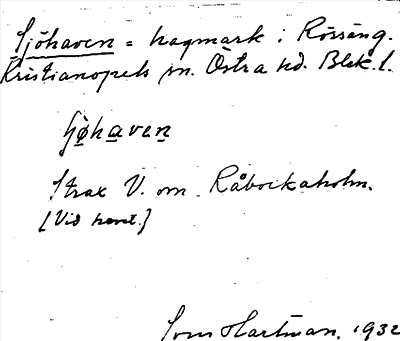 Sjöhaven = hagmark i Rörsäng.
Kristianopels sn. Östra hd. Blek. l.
Sjöhaven
Strax V. om Råbockaholm.
[Vid havet.]
Hartman. 1932